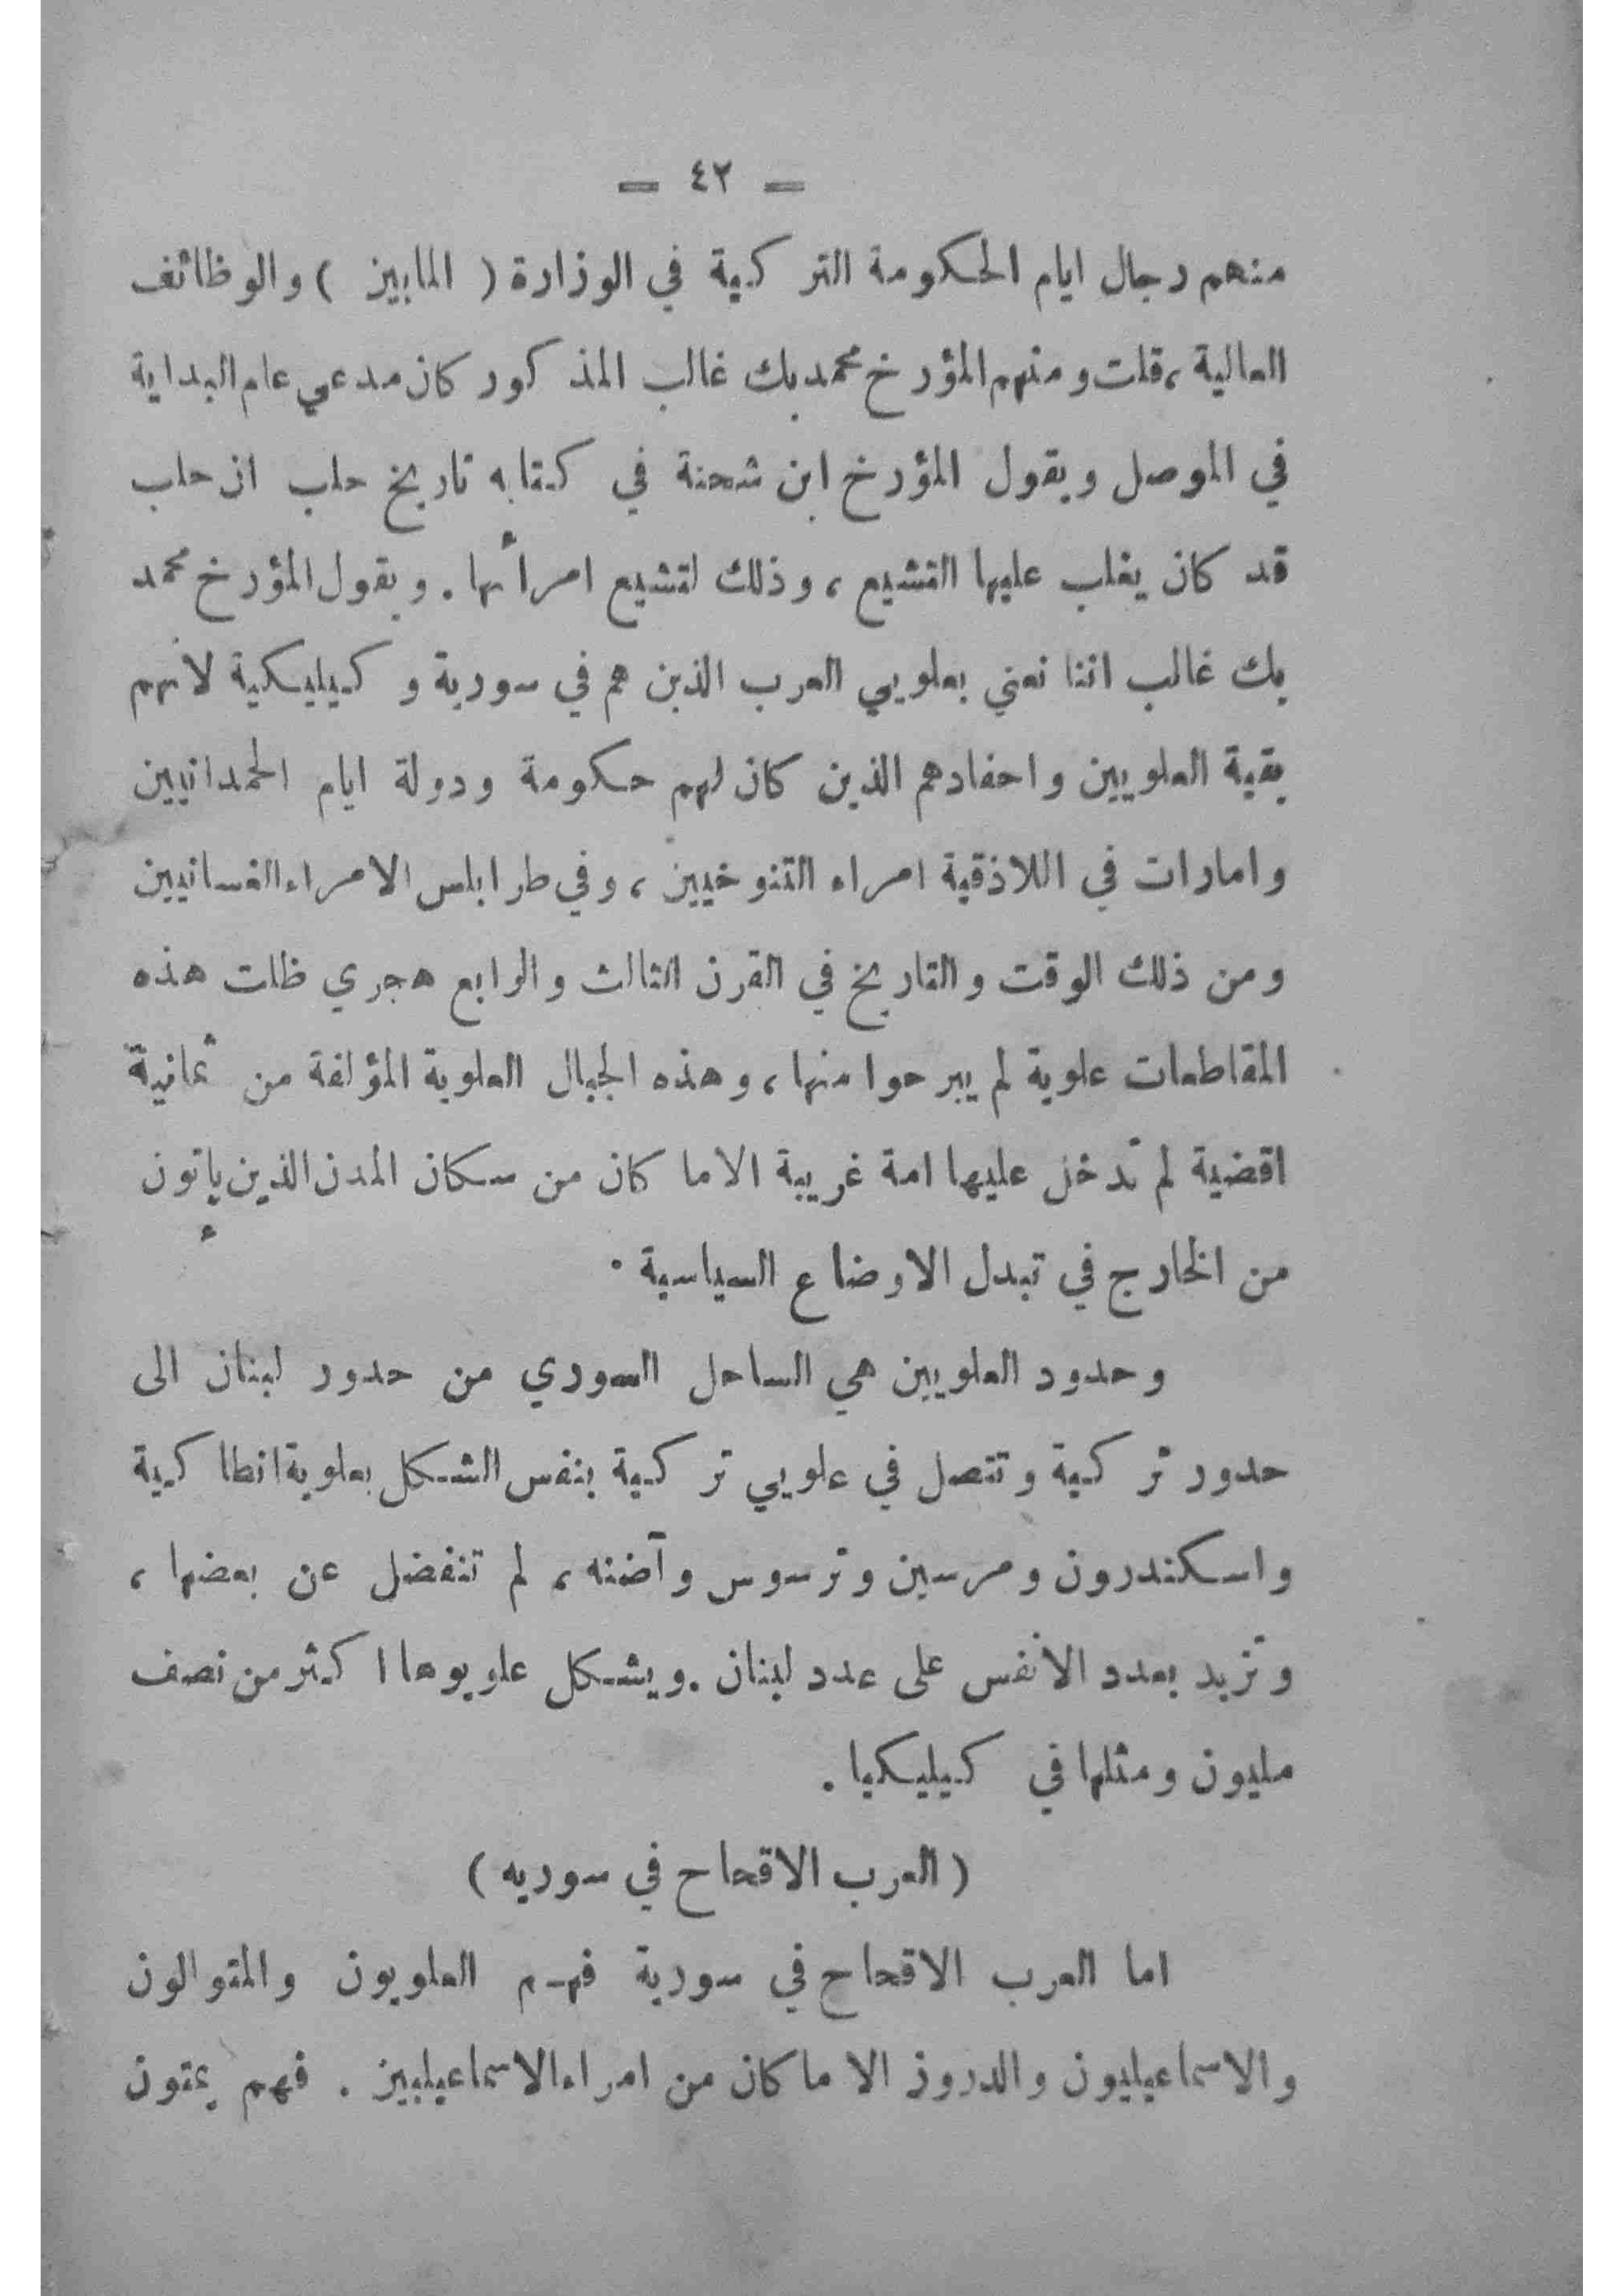 — ٤٢ —
منهم رجال ايام الحكومة التركية في الوزارة ( المابين ) والوظائف
العالية ، قلت ومنهم المؤرخ محمد بك غالب المذكور كان مدعي عام البداية
في الموصل ويقول المؤرخ ابن شحنة في كتابه تاريخ حلب ان حلب
قد كان يغلب عليها التشيع ، وذلك لتشيع امرأئها . ويقول المؤرخ محمد
بك غالب اننا نعني بعلويي العرب الذين هم في سورية و كيليكية لانهم
بقية العلويين واحفادهم الذين كان لهم حكومة ودولة ايام الحمدانيين
وامارات في اللاذقية امراء التنوخيين ، وفي طرابلس الامراء الغسانيين
ومن ذلك الوقت والتاريخ في القرن الثالث والرابع هجري ظلت هذه
المقاطعات علوية لم يبرحوا منها ، وهذه الجبال العلوية المؤلفة من ثمانية
اقضية لم تدخل عليها امة غريبة الا ما كان من سكان المدن الذين يأتون
من الخارج في تبدل الاوضاع السياسية .
وحدود العلويين هي الساحل السوري من حدور لبنان الى
حدور تركية وتتصل في علويي تركية بنفس الشكل بعلوية انطاكية
واسكندرون ومرسين وترسوس وآضنه ، لم تنفضل عن بعضها ،
وتزيد بعدد الانفس على عدد لبنان . ويشكل علويوها اكثر من نصف
مليون ومثلها في كيليكيا .
( العرب الاقحاح في سوريه )
اما العرب الاقحاح في سورية فهم العلويون والمتوالون
والاسماعيليون والدروز الا ما كان من امراء الاسماعيليين . فهم يمتون